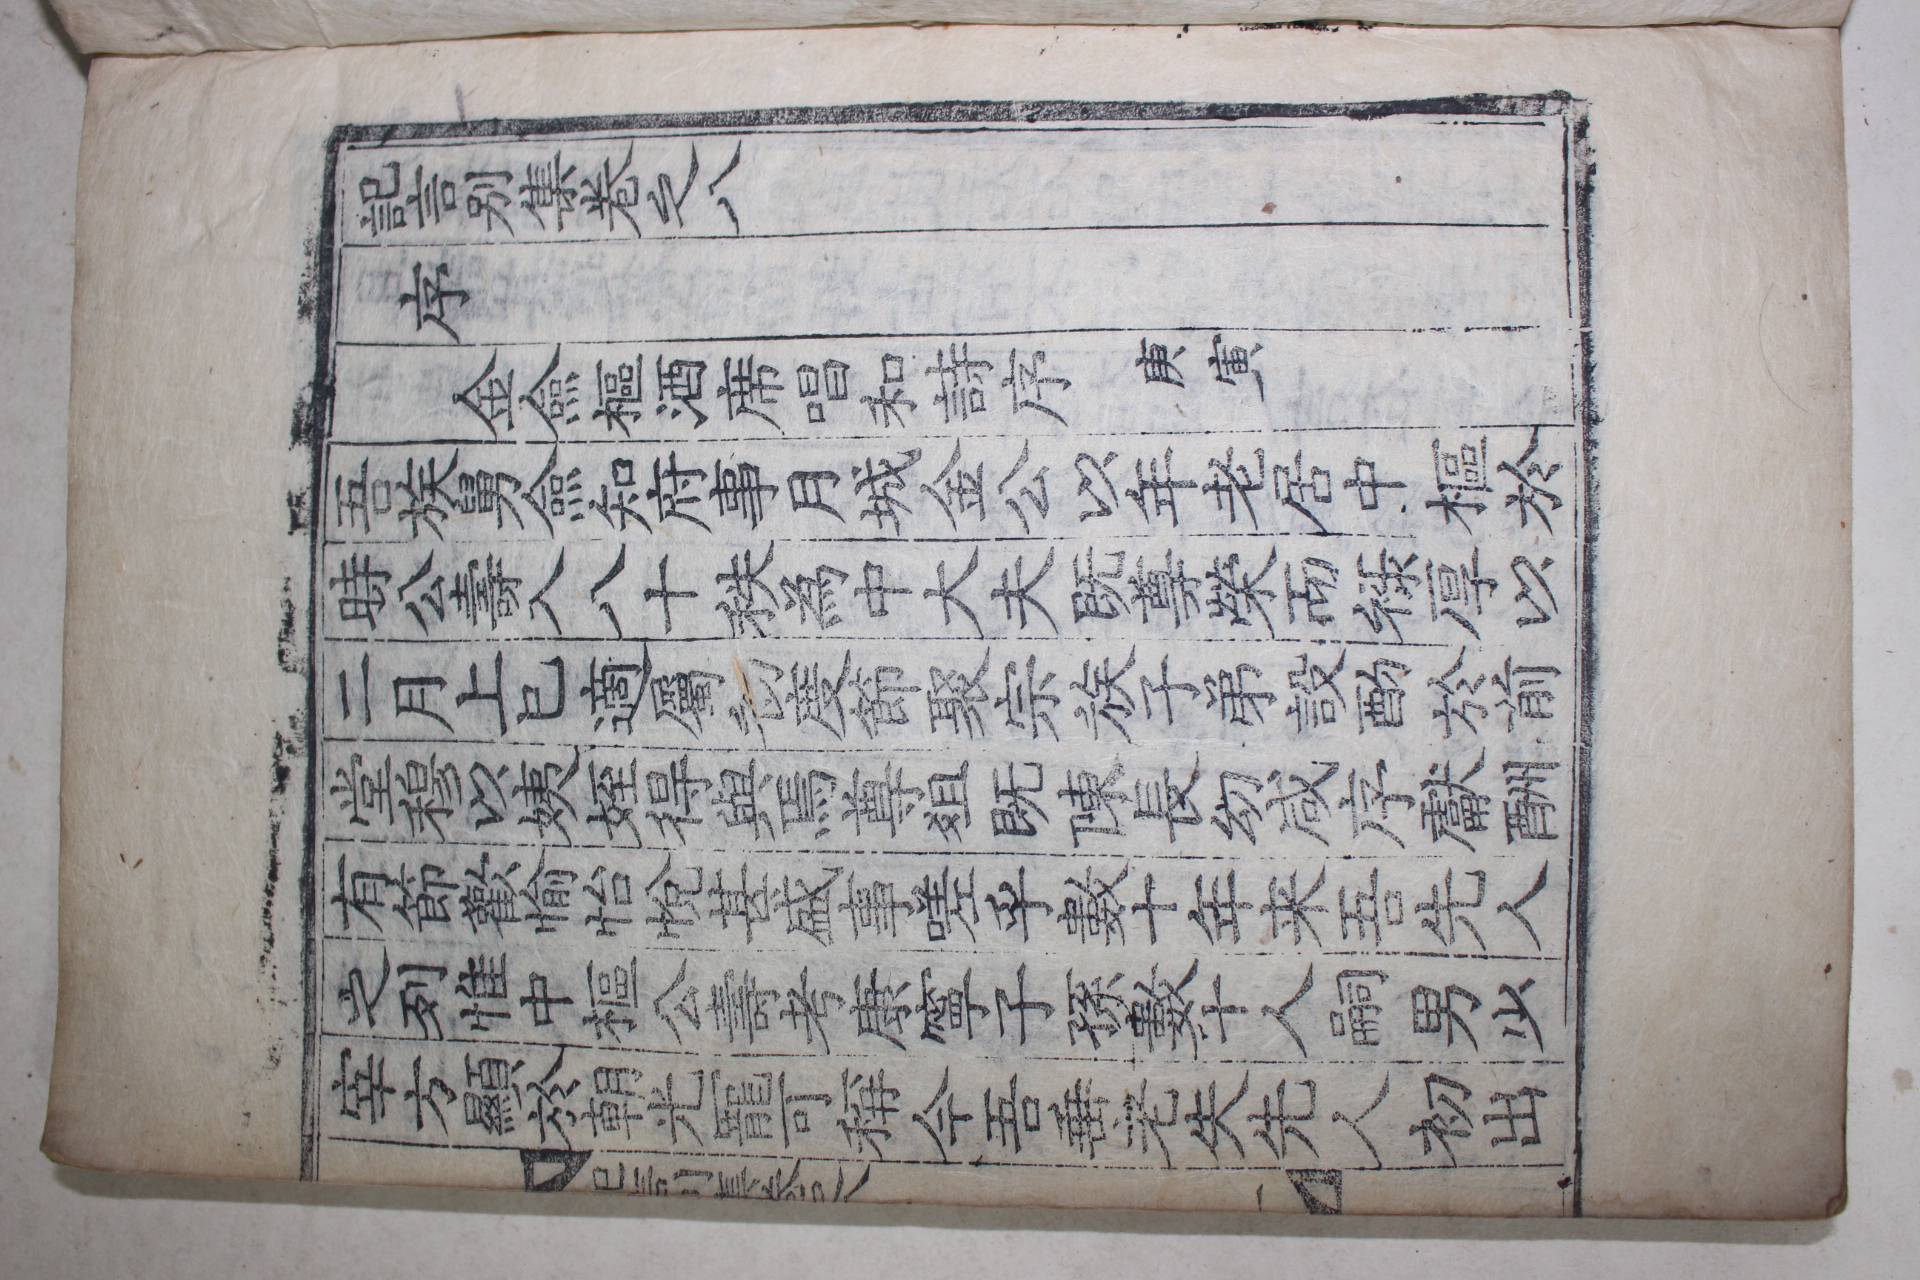 記言別集卷之八
序
金僉樞酒席唱和詩序 庚寅
吾族舅僉知府事月城金公以年老居中樞於
時公壽入八十秩爲中大夫旣尊榮而祿厚以
三月上巳適屬初度節聚宗族子弟設酌於前
堂穆以姨姪得與焉尊俎旣陳長幼咸序獻酬
有節歡愉怡悅甚盛事嗟乎數十年來吾先人
之列惟中樞公壽考康寧子孫數十人嗣男少
宰方顯於朝光寵可稱今吾垂老矣先人初出
記言別集卷之八